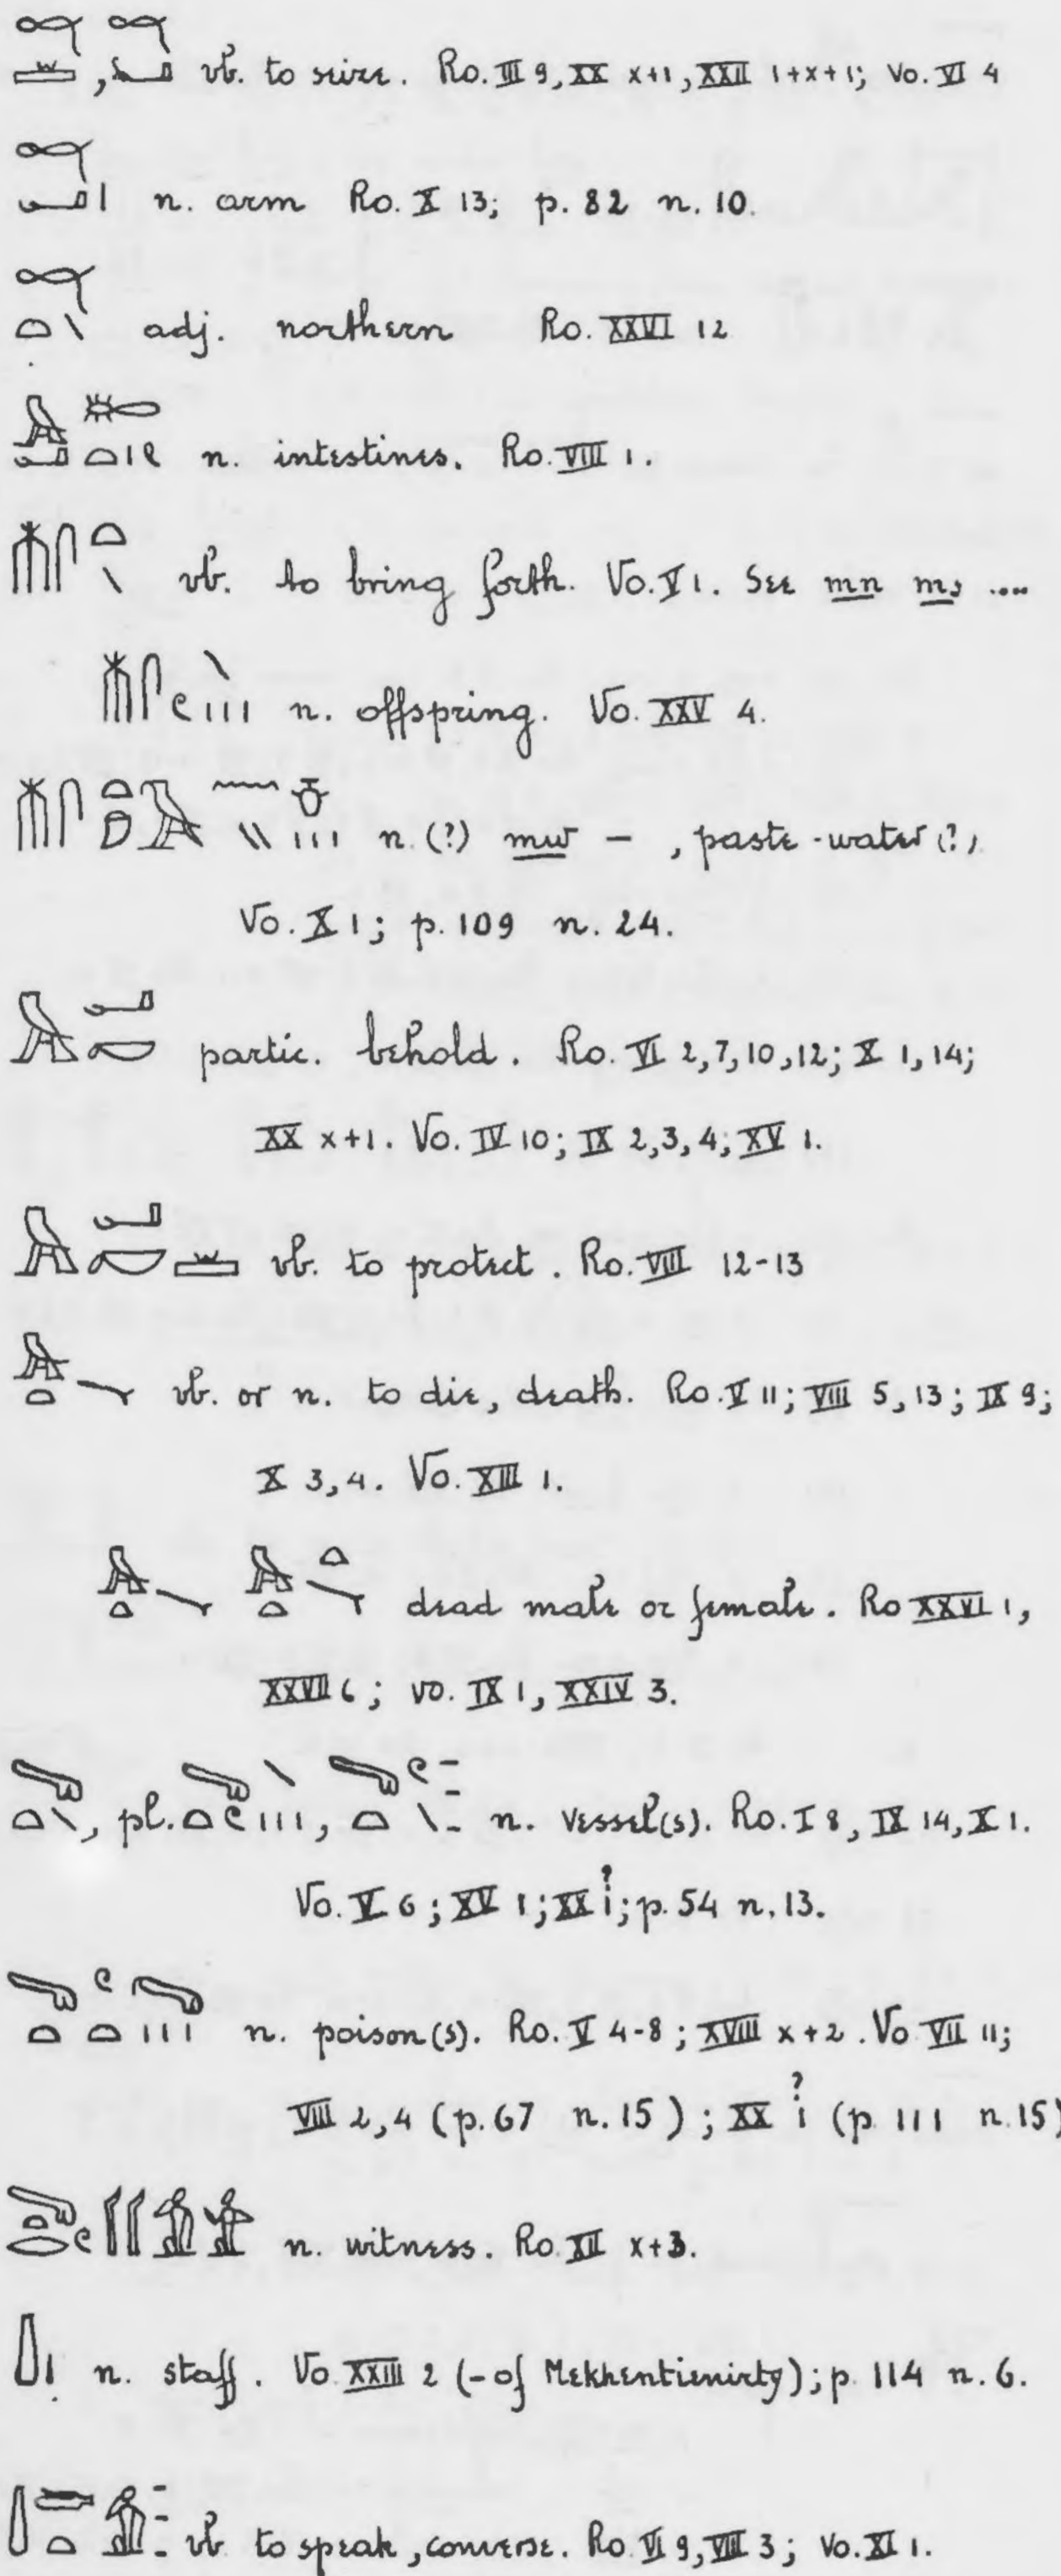 , vb. to seize. Ro. III 9, XX x+1, XXII 1+x+1; Vo. VI 4
n. arm Ro. X 13; p. 82 n. 10.
adj. northern Ro. XXVI 12
n. intestines. Ro. VIII 1.
vb. to bring forth. Vo. V 1. See mn ms ....
n. offspring. Vo. XXV 4.
n. (?) mw – , paste-water (?)
Vo. X 1; p. 109 n. 24.
partic. behold. Ro. VI 2,7,10,12; X 1,14;
XX x+1. Vo. IV 10; IX 2,3,4; XV 1.
vb. to protect. Ro. VIII 12-13
vb. or n. to die, death. Ro. V 11; VIII 5,13; IX 9;
X 3,4. Vo. XIII 1.
dead male or female. Ro XXVI 1,
XXVII 6; vo. IX 1, XXIV 3.
, pl. , n. vessel(s). Ro. I 8, IX 14, X 1.
Vo. V 6; XV 1; XX i?; p. 54 n. 13.
n. poison(s). Ro. V 4-8; XVIII x+2. Vo VII 11;
VIII 2,4 (p. 67 n. 15); XX i? (p. 111 n. 15)
n. witness. Ro. XII x+3.
n. staff. Vo. XXIII 2 (- of Mekhentienirty); p. 114 n. 6.
vb to speak, converse. Ro. VI 9, VIII 3; Vo. XI 1.